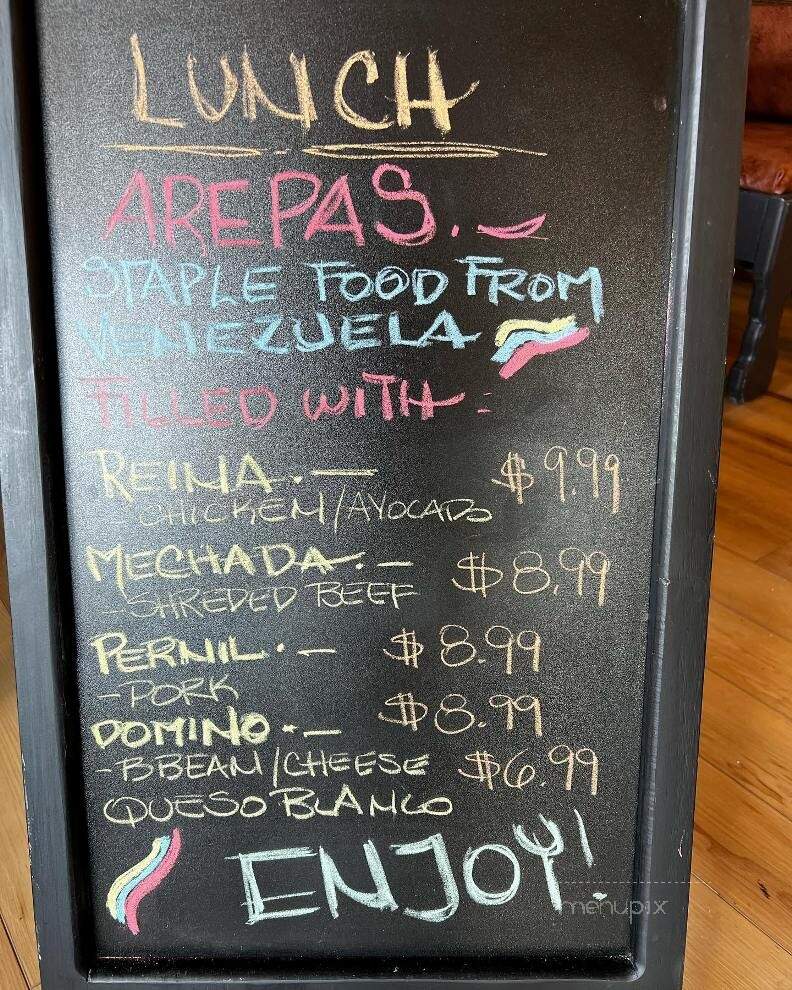 LUNCH
AREPAS.
STAPLE FOOD FROM
VENEZUELA
FILLED WITH:
REINA.— $9.99
-CHICKEN/AVOCADO
MECHADA.— $8.99
-SHREDED BEEF
PERNIL.— $8.99
-PORK
DOMINO.— $8.99
-BBEAN/CHEESE $6.99
QUESO BLANCO
ENJOY!
menupix